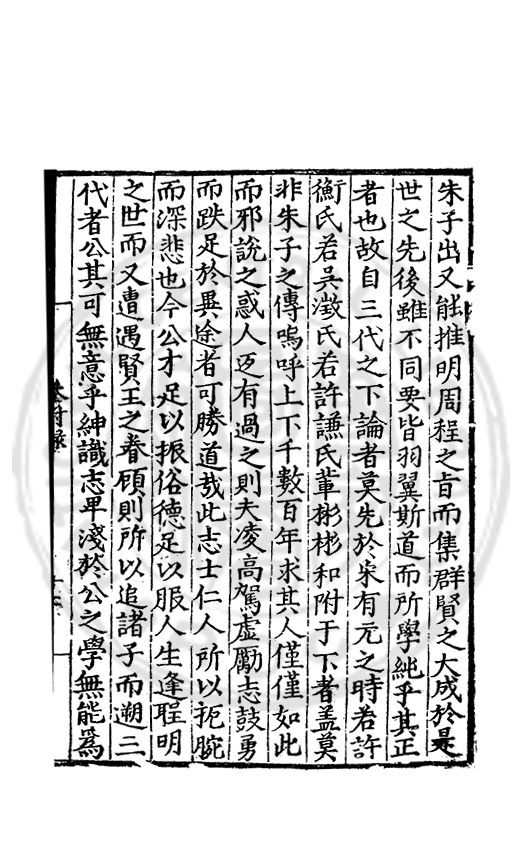 朱子出又能推明周程之旨而集群賢之大成於是
世之先後雖不同要皆羽翼斯道而所學純乎其正
者也故自三代之下論者莫先於宋有元之時若許
衡氏若吳澂氏若許謙氏輩彬彬和附于下者盖莫
非朱子之傳嗚呼上下千數百年求其人僅僅如此
而邪說之惑人迈有過之則夫凌高駕虛勵志鼓勇
而跌足於異途者可勝道哉此志士仁人所以扼腕
而深悲也今公才足以振俗德足以服人生逢聖明
之世而又遭遇賢王之眷顧則所以追諸子而遡三
代者公其可無意乎紳識志卑淺於公之學無能為
附錄